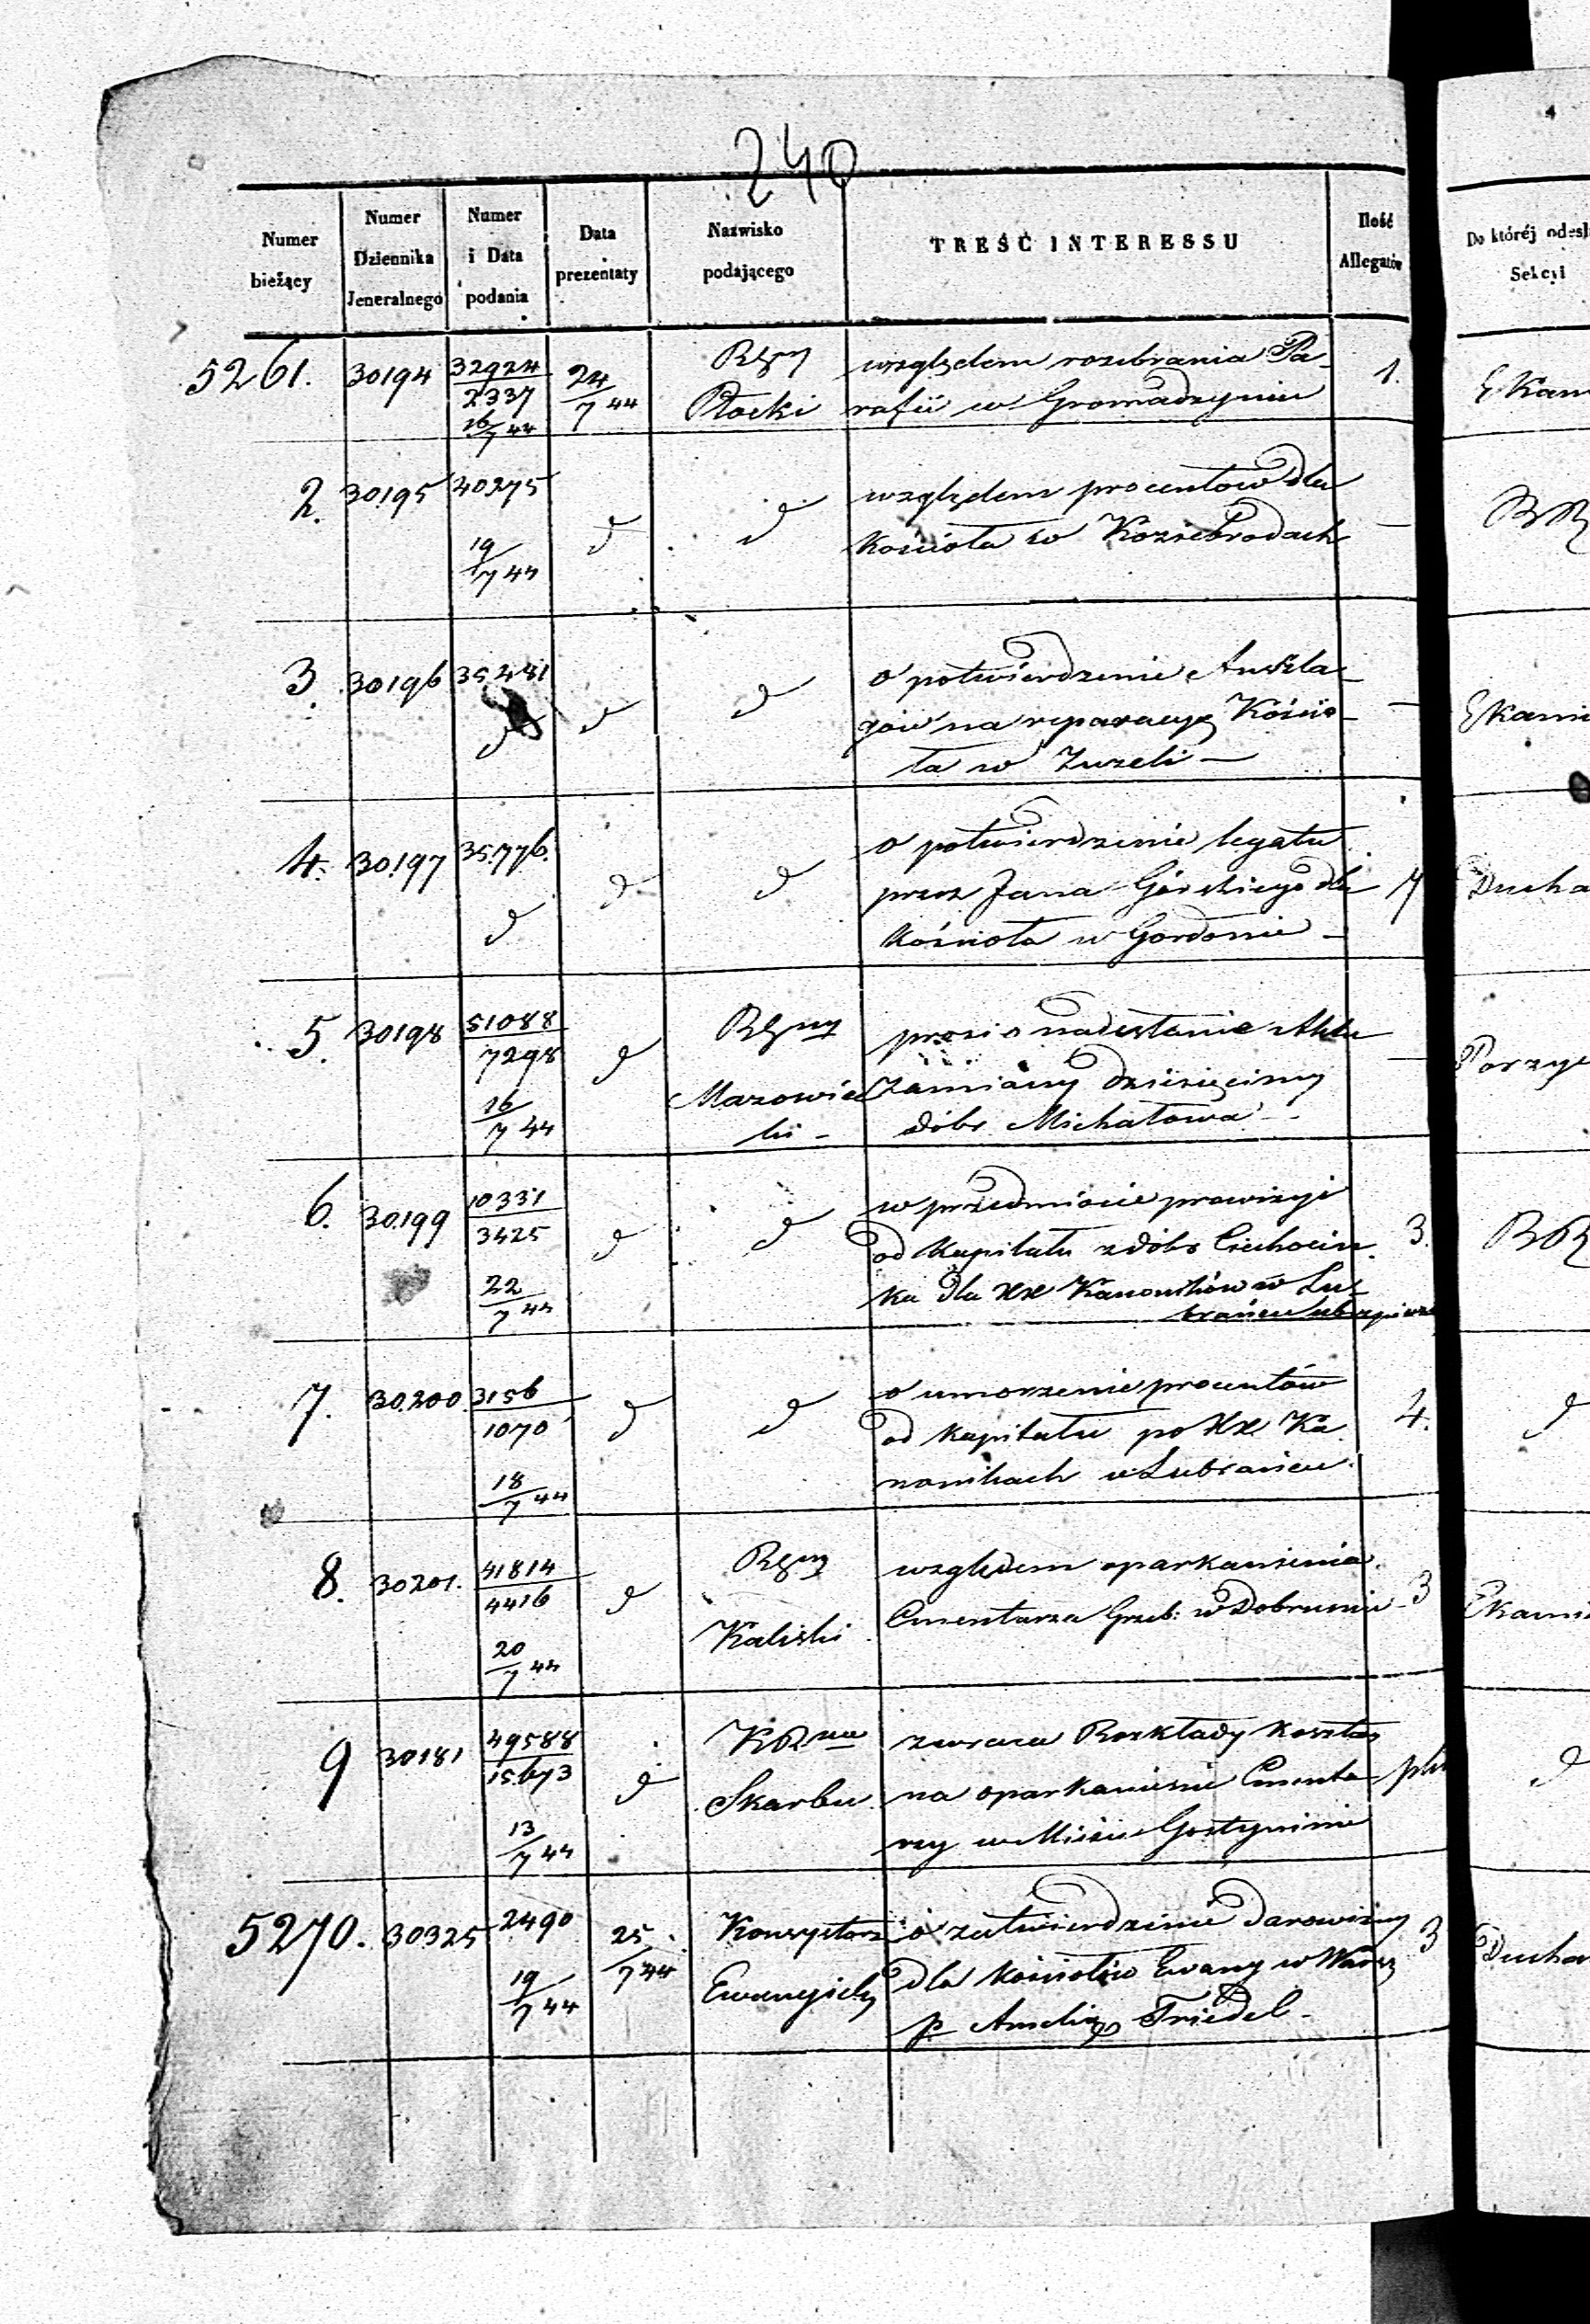 240
Numer bieżący
Numer Dziennika Jeneralnego
Numer i Data podania
Data prezentaty
Nazwisko podającego
TREŚĆ INTERESSU
Ilość Allegatów
Do któréj odesł
Sekcyi
5261. 30194 32924/2337 16/7 44 24/7 44 RGny Płocki
względem rozebrania Pa-
rafii w Gromadzyniu
1.
2. 30195 40275 19/7 44 d d
względem procentów dla
Kościoła w Koziebrodach
—
3. 30196 35481 d d d
o potwierdzenie Anszla-
gów na reparacyę Kościo-
ła w Zuzeli —
—
4. 30197 35.776. d d d
o potwierdzenie legatu
przez Jana Górskiego dla
Kościoła w Gordonie —
7
Ducho
5. 30198 51088/7298 16/7 44 d RGny Mazowiec
ki -
prosi o nadesłanie Aktu
Zamiany dziesięciny
dóbr Michałowa -
—
6. 30199 10331/3425 22/7 44 d d
w przedmiocie prowizyi
od Kapitału z dóbr Ciechocin
ka dla XX Kanoników w Lu-
brańcu
3.
7. 30200 3156/1070 18/7 44 d d
o umorzenie procentów
od kapitału po XX Ka
nonikach w Lubrańcu.
4.
d
8. 30201. 41814/4416 20/7 44 d RGny Kaliski
względem oparkanienia
Cmentarza Grzeb: w Dobruniu
3
9 30181 49588/15.673 13/7 44 d KRna Skarbu
zwraca Rozkłady kosztów
na oparkanienie Cmenta-
rzy w Mieście Gostyninie
plik
d
5270. 30325 2490 19/7 44 25/7 44 Konsystorz Ewangielic
o zatwierdzenie darowizny
dla kościołów Ewang w Warsz
p Amelię Friedel -
3
Ducho